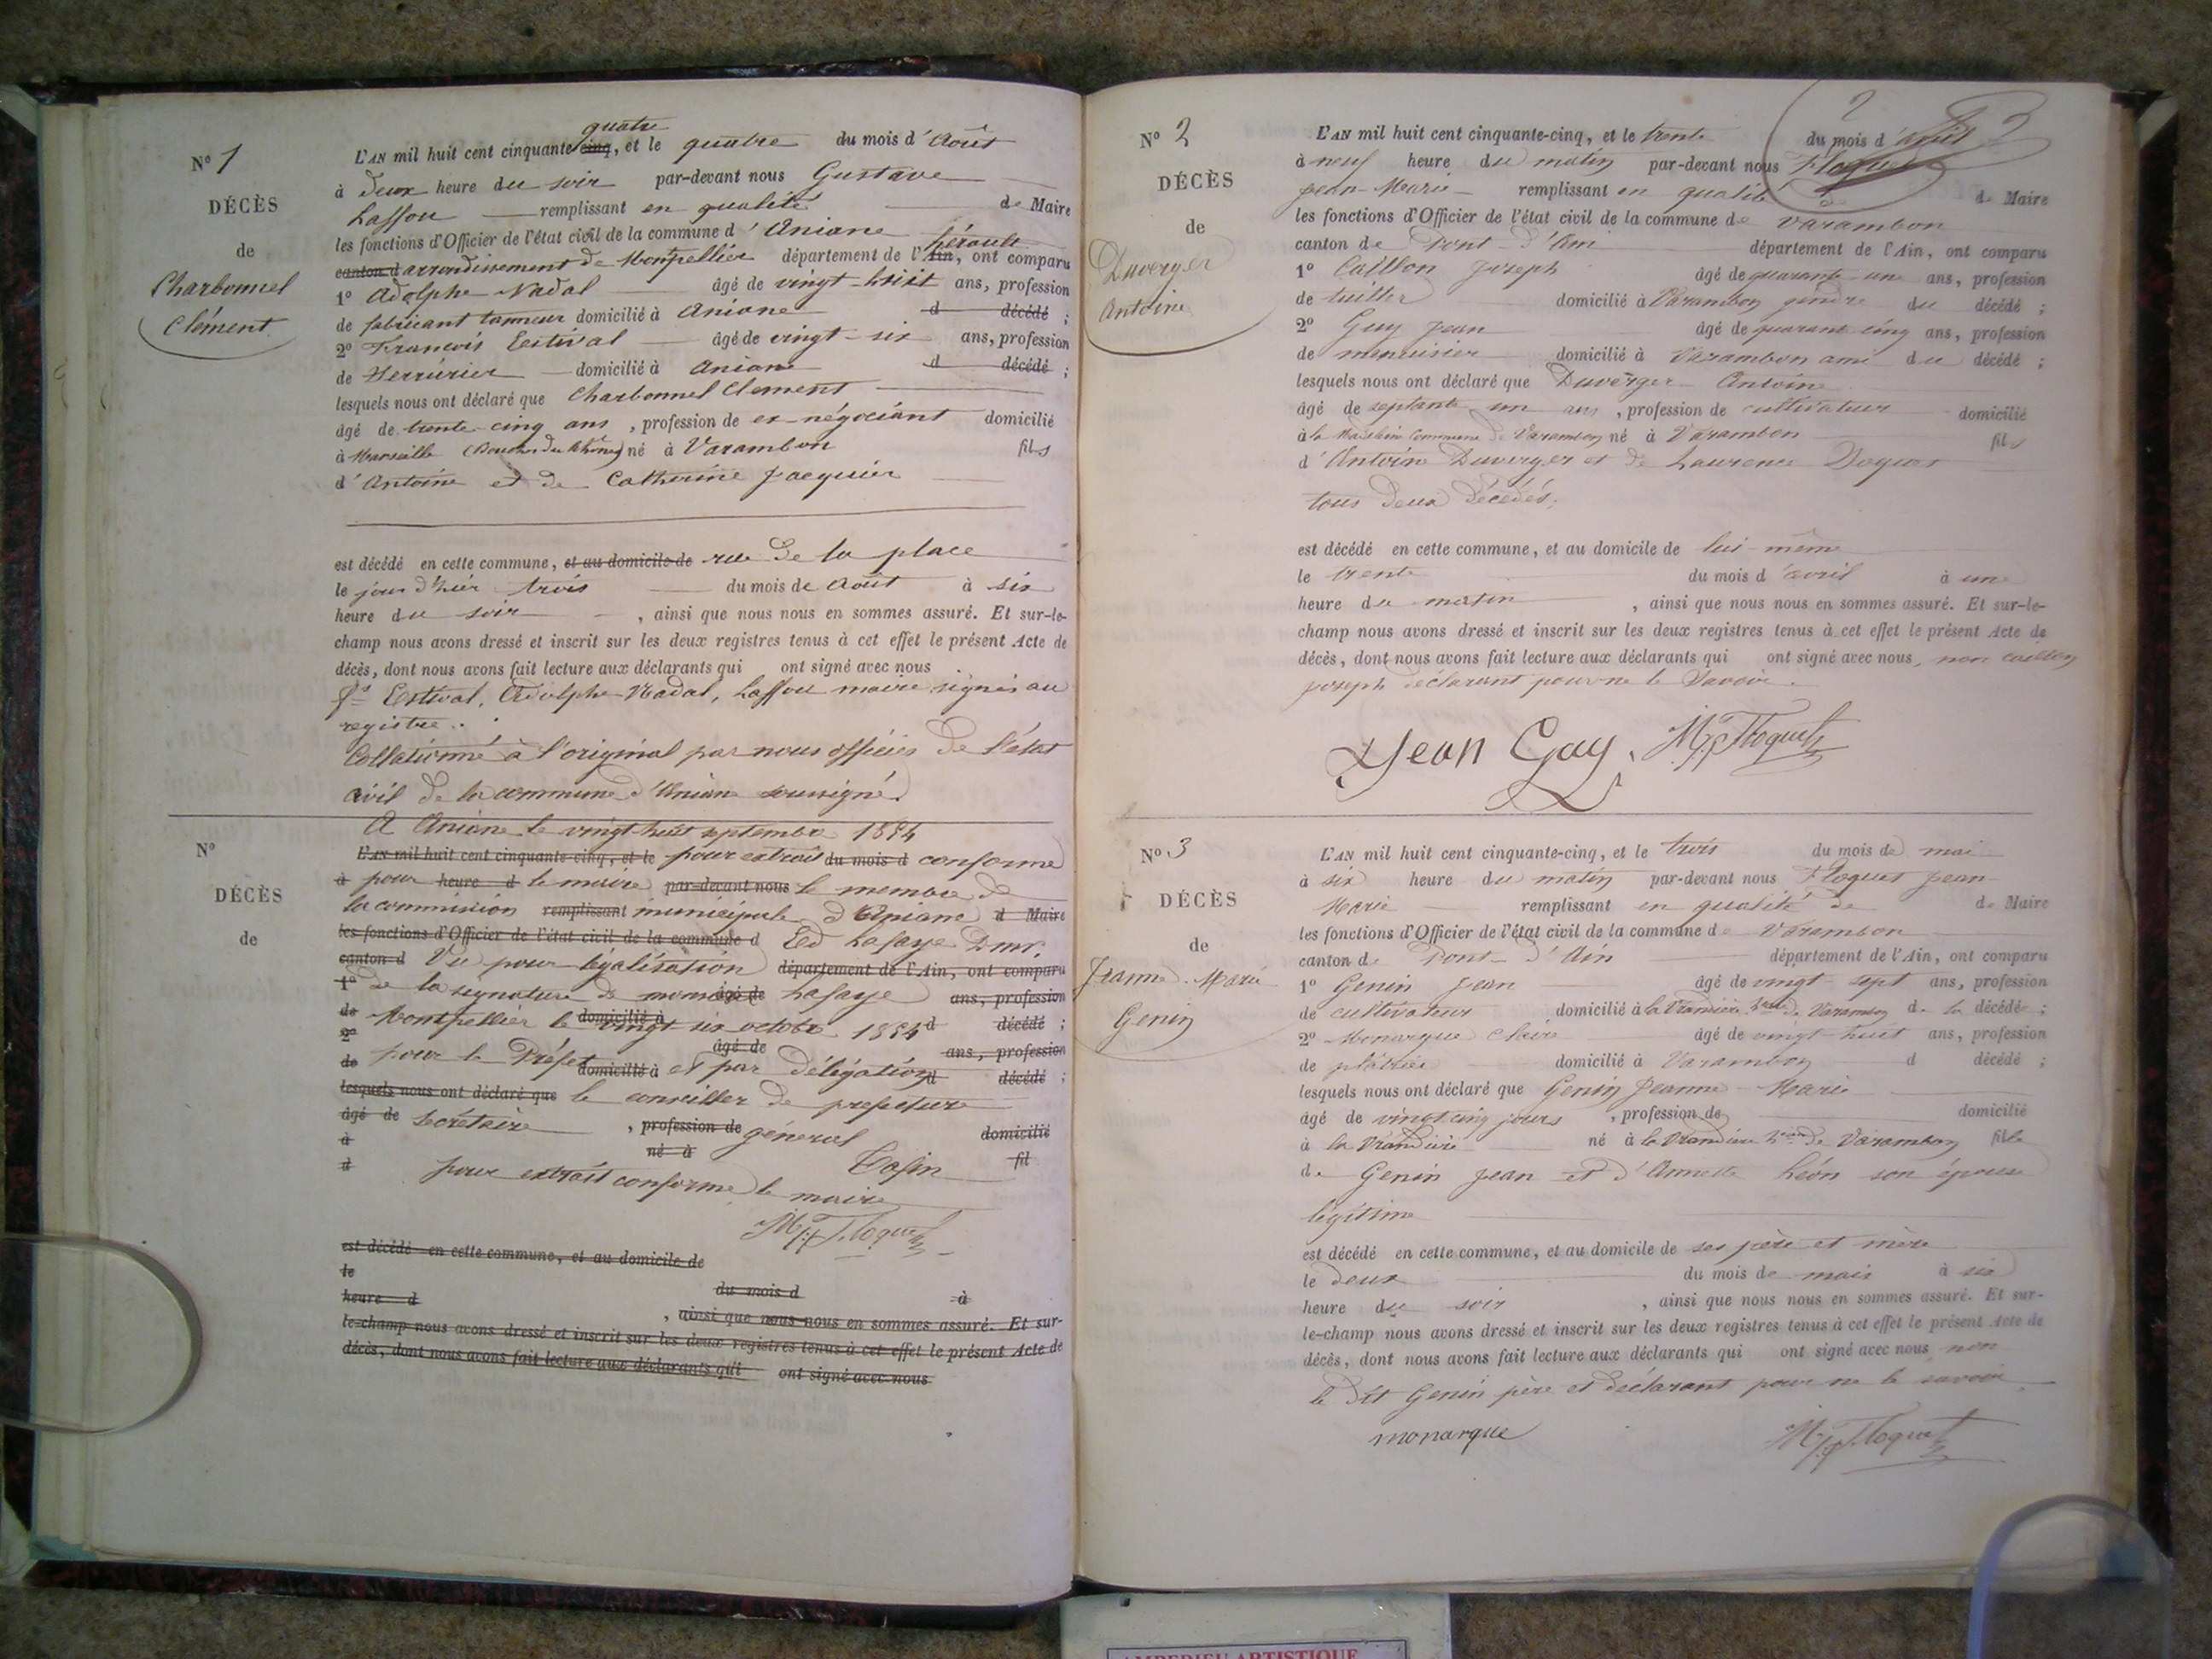 N° 1
DÉCÈS
de
Charbonnel
Clément
quatre
L'AN mil huit cent cinquante cinq, et le quatre du mois d'Août
à deux heure du soir par-devant nous Gustave
Lassou remplissant en qualité de Maire
les fonctions d'Officier de l'état civil de la commune d'Aniane
hérault
canton d arrondissement de Montpellier département de l'Ain, ont comparu
1° Adolphe Nadal âgé de vingt-huit ans, profession
de fabricant tanneur domicilié à Aniane d décédé ;
2° François Estival âgé de vingt-six ans, profession
de Serrurier domicilié à Aniane d décédé ;
lesquels nous ont déclaré que Charbonnel Clement
âgé de trente-cinq ans, profession de ex-négociant domicilié
à Marseille (Bouches du Rhône) né à Varambon fils
d'Antoine et de Catherine Jacquier
est décédé en cette commune, et au domicile de rue de la place
le jour d'hier trois du mois de Août à six
heure du soir, ainsi que nous nous en sommes assuré. Et sur-le-
champ nous avons dressé et inscrit sur les deux registres tenus à cet effet le présent Acte de
décès, dont nous avons fait lecture aux déclarants qui ont signé avec nous.
fs Estival, Adolphe Nadal, Lassou maire signés au
registre.
Collationné à l'original par nous officier de l'état
civil de la commune d'Aniane soussigné.
A Aniane le vingt-huit septembre 1854
N°
DÉCÈS
de
L'AN mil huit cent cinquante-cinq, et le pour extrait du mois d conforme
à pour heure d le maire par-devant nous le membre de
la commission remplissant municipale d'Aniane d Maire
les fonctions d'Officier de l'état civil de la commune d Ed Lafaye Dmr.
canton d Vu pour légalisation département de l'Ain, ont comparu
1° de la signature de âgé de Lafaye ans, profession
de Montpellier le domicilié à vingt six octobre 1854 d décédé ;
2° âgé de ans, profession
de pour le Préfet domicilié à et par délégation d décédé ;
lesquels nous ont déclaré que le conseiller de prefecture
âgé de Secrétaire, profession de général domicilié
à né à fil
d pour extrait conforme le maire
MJ Floquet
est décédé en cette commune, et au domicile de
le du mois d à
heure d, ainsi que nous nous en sommes assuré. Et sur-
le-champ nous avons dressé et inscrit sur les deux registres tenus à cet effet le présent Acte de
décès, dont nous avons fait lecture aux déclarants qui ont signé avec nous
2
2
N° 2
DÉCÈS
de
Duverger
Antoine
L'AN mil huit cent cinquante-cinq, et le trente du mois d'avril
à neuf heure du matin par-devant nous Floquet
Jean-Marie remplissant en qualité de de Maire
les fonctions d'Officier de l'état civil de la commune de Varambon
canton de Pont-d'Ain département de l'Ain, ont comparu
1° Caillon Joseph âgé de quarante-une ans, profession
de tuillier domicilié à Varambon gendre du décédé ;
2° Guy Jean âgé de quarant cinq ans, profession
de menuisier domicilié à Varambon ami du décédé ;
lesquels nous ont déclaré que Duverger Antoine
âgé de septante un ans, profession de cultivateur domicilié
à la commune de Varambon né à Varambon fils
d'Antoine Duverger et de Laurence
tous deux décédés.
est décédé en cette commune, et au domicile de lui-même
le trente du mois d'avril à une
heure du matin, ainsi que nous nous en sommes assuré. Et sur-le-
champ nous avons dressé et inscrit sur les deux registres tenus à cet effet le présent Acte de
décès, dont nous avons fait lecture aux déclarants qui ont signé avec nous, non caillon
joseph déclarant pour ne le Savoir.
Jean Gay, MJ Floquet
N° 3
DÉCÈS
de
Jeanne-Marie
Genin
L'AN mil huit cent cinquante-cinq, et le trois du mois de mai
à six heure du matin par-devant nous Floquet Jean
Marie remplissant en qualité de de Maire
les fonctions d'Officier de l'état civil de la commune de Varambon
canton de Pont-d'Ain département de l'Ain, ont comparu
1° Genin Jean âgé de vingt-sept ans, profession
de cultivateur domicilié à la de Varambon de la décédée ;
2° Monarque Claire âgé de vingt-huit ans, profession
de plâtrier domicilié à Varambon d décédé ;
lesquels nous ont déclaré que Genin Jeanne-Marie
âgé de vingt cinq jours, profession de domicilié
à la né à la de Varambon fille
de Genin Jean et d'Annette Léon son épouse
légitime
est décédé en cette commune, et au domicile de ses père et mère
le deux du mois de mais à six
heure du soir, ainsi que nous nous en sommes assuré. Et sur-
le-champ nous avons dressé et inscrit sur les deux registres tenus à cet effet le présent Acte de
décès, dont nous avons fait lecture aux déclarants qui ont signé avec nous non
le dit Genin père et déclarant pour ne le savoir
monarque MJ Floquet
AMPERIEU ARTISTIQUE